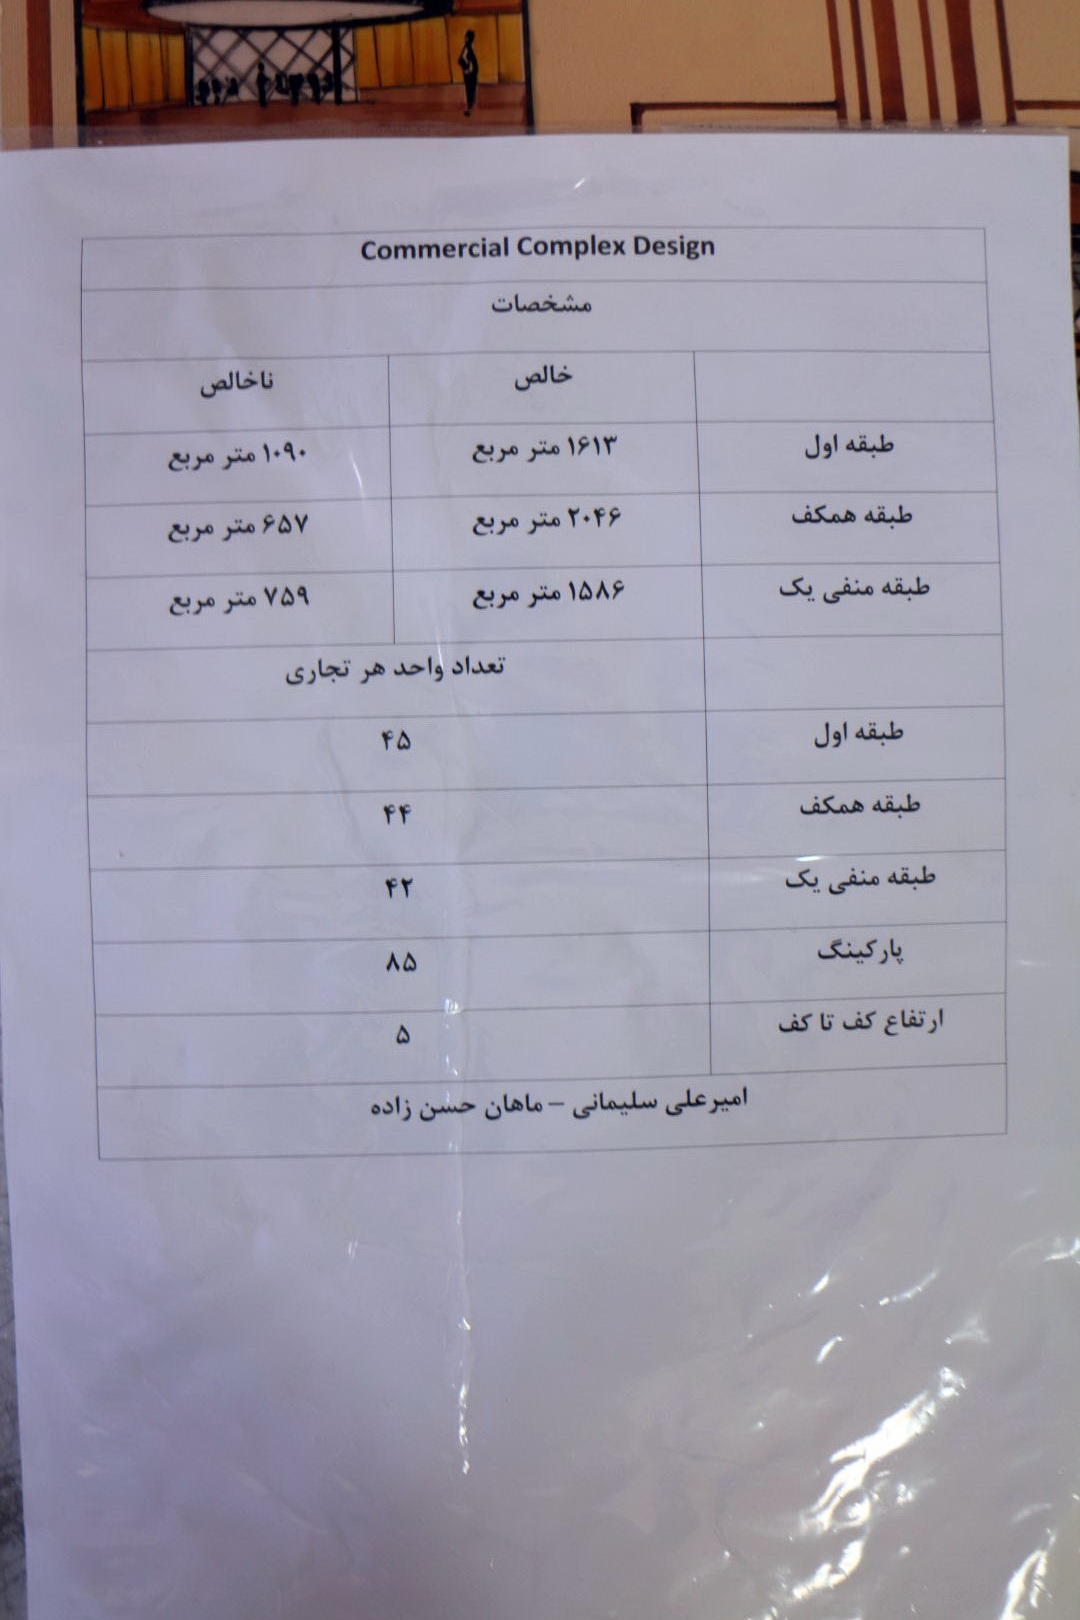 Commercial Complex Design
مشخصات
خالص ناخالص
طبقه اول ۱۶۱۳ متر مربع ۱۰۹۰ متر مربع
طبقه همکف ۲۰۴۶ متر مربع ۶۵۷ متر مربع
طبقه منفی یک ۱۵۸۶ متر مربع ۷۵۹ متر مربع
تعداد واحد هر تجاری
طبقه اول ۴۵
طبقه همکف ۴۴
طبقه منفی یک ۴۲
پارکینگ ۸۵
ارتفاع کف تا کف ۵
امیرعلی سلیمانی – ماهان حسن زاده